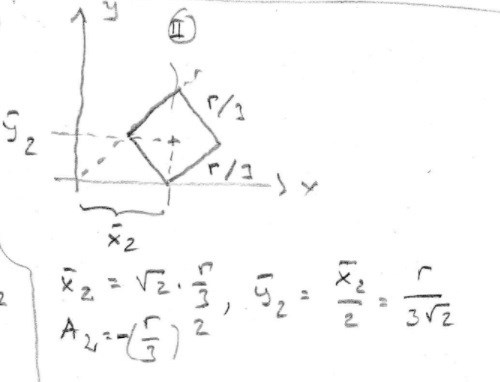 y
II
r
r/3
ȳ₂
r/3
x
x̄₂
x̄₂ = √2 · r/3 , ȳ₂ = x̄₂/2 = r/(3√2)
A₂ = -(r/3)²
2